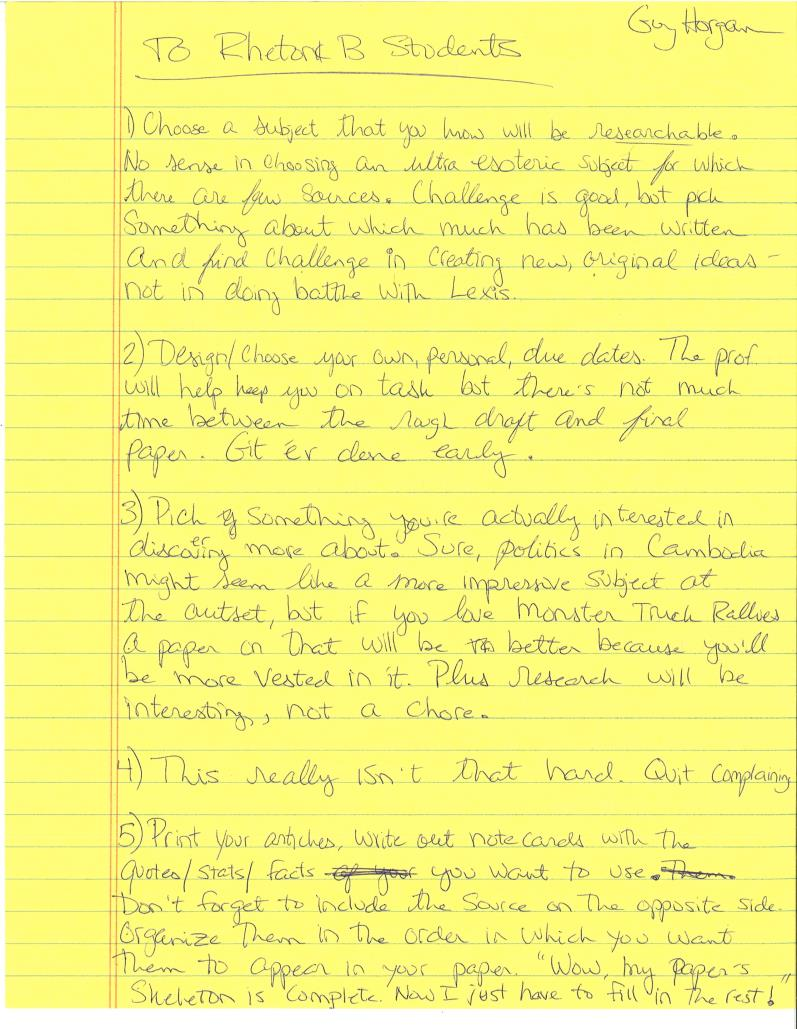 Guy Horgan
To Rhetoric B Students
1) Choose a subject that you know will be researchable.
No sense in choosing an ultra esoteric subject for which
there are few sources. Challenge is good, but pick
something about which much has been written
and find challenge in creating new, original ideas –
not in doing battle with Lexis.
2) Design/Choose your own, personal, due dates. The prof.
will help keep you on task but there's not much
time between the rough draft and final
paper. Git 'er done early.
3) Pick something you're actually interested in
discovering more about. Sure, politics in Cambodia
might seem like a more impressive subject at
the outset, but if you love Monster Truck Rallies
a paper on that will be better because you'll
be more vested in it. Plus research will be
interesting, not a chore.
4) This really isn't that hard. Quit complaining
5) Print your articles, write out notecards with the
quotes/stats/facts of your you want to use. Them.
Don't forget to include the source on the opposite side.
Organize them in the order in which you want
them to appear in your paper. "Wow, my paper's
skeleton is complete. Now I just have to fill in the rest!"